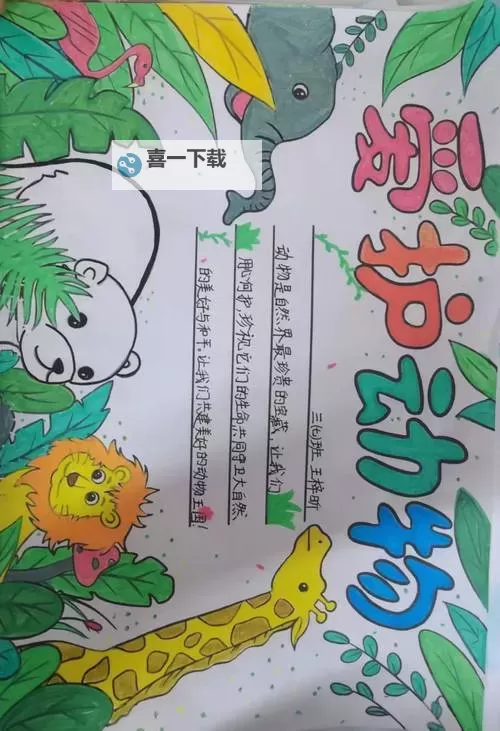 爱护动物
三(七)班 王梓昕
动物是自然界最珍贵的宝藏,让我们
用心呵护,珍视它们的生命共同守卫大自然
的美好与和平,让我们共建美好的动物王国!
喜一下载